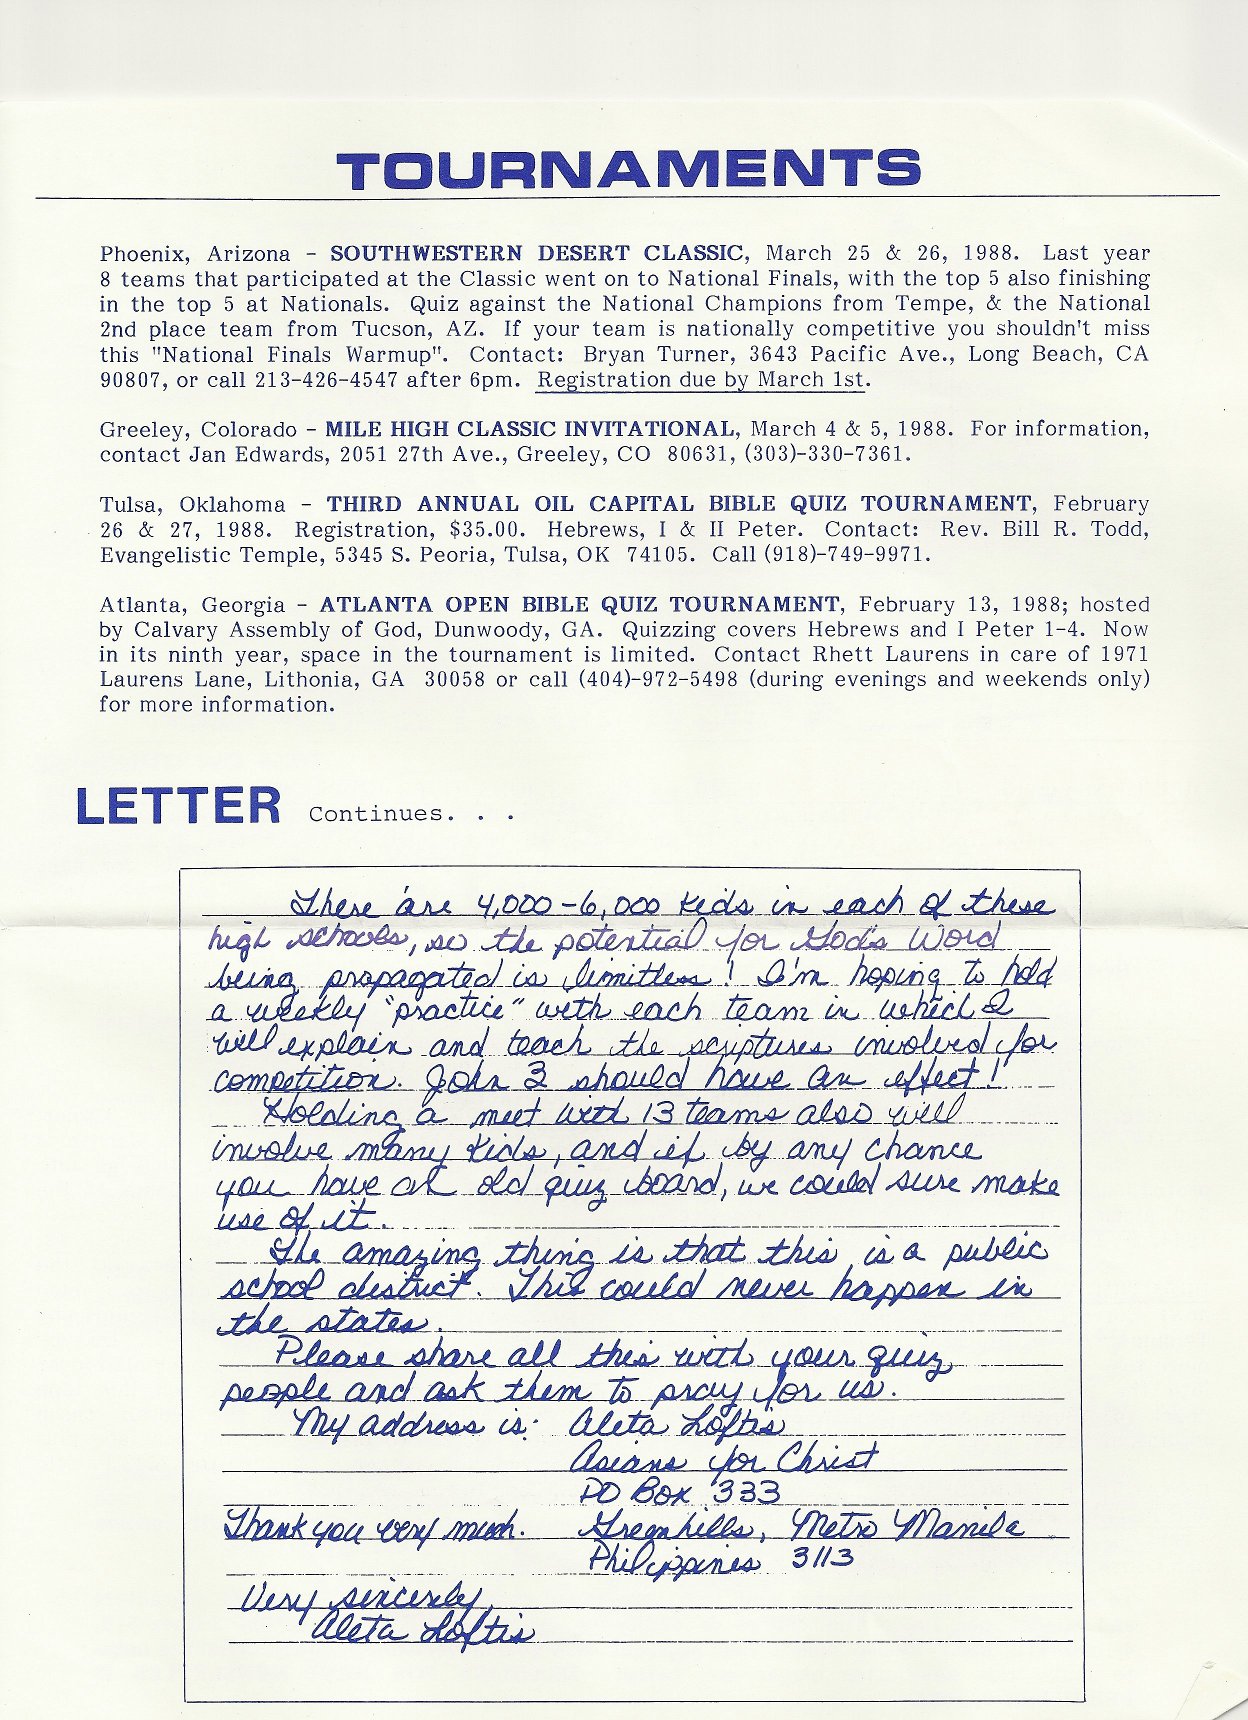 TOURNAMENTS
Phoenix, Arizona - SOUTHWESTERN DESERT CLASSIC, March 25 & 26, 1988. Last year
8 teams that participated at the Classic went on to National Finals, with the top 5 also finishing
in the top 5 at Nationals. Quiz against the National Champions from Tempe, & the National
2nd place team from Tucson, AZ. If your team is nationally competitive you shouldn't miss
this "National Finals Warmup". Contact: Bryan Turner, 3643 Pacific Ave., Long Beach, CA
90807, or call 213-426-4547 after 6pm. Registration due by March 1st.
Greeley, Colorado - MILE HIGH CLASSIC INVITATIONAL, March 4 & 5, 1988. For information,
contact Jan Edwards, 2051 27th Ave., Greeley, CO 80631, (303)-330-7361.
Tulsa, Oklahoma - THIRD ANNUAL OIL CAPITAL BIBLE QUIZ TOURNAMENT, February
26 & 27, 1988. Registration, $35.00. Hebrews, I & II Peter. Contact: Rev. Bill R. Todd,
Evangelistic Temple, 5345 S. Peoria, Tulsa, OK 74105. Call (918)-749-9971.
Atlanta, Georgia - ATLANTA OPEN BIBLE QUIZ TOURNAMENT, February 13, 1988; hosted
by Calvary Assembly of God, Dunwoody, GA. Quizzing covers Hebrews and I Peter 1-4. Now
in its ninth year, space in the tournament is limited. Contact Rhett Laurens in care of 1971
Laurens Lane, Lithonia, GA 30058 or call (404)-972-5498 (during evenings and weekends only)
for more information.
LETTER Continues. . .
There are 4,000-6,000 kids in each of these
high schools, so the potential for God's Word
being propagated is limitless! I'm hoping to hold
a weekly "practice" with each team in which I
will explain and teach the scriptures involved for
competition. John 3 should have an effect!
Holding a meet with 13 teams also will
involve many kids, and if by any chance
you have an old quiz board, we could sure make
use of it.
The amazing thing is that this is a public
school district. This could never happen in
the states.
Please share all this with your quiz
people and ask them to pray for us.
My address is: Aleta Loftis
Asians for Christ
PO Box 333
Thank you very much. Greenhills, Metro Manila
Philippines 3113
Very sincerely,
Aleta Loftis